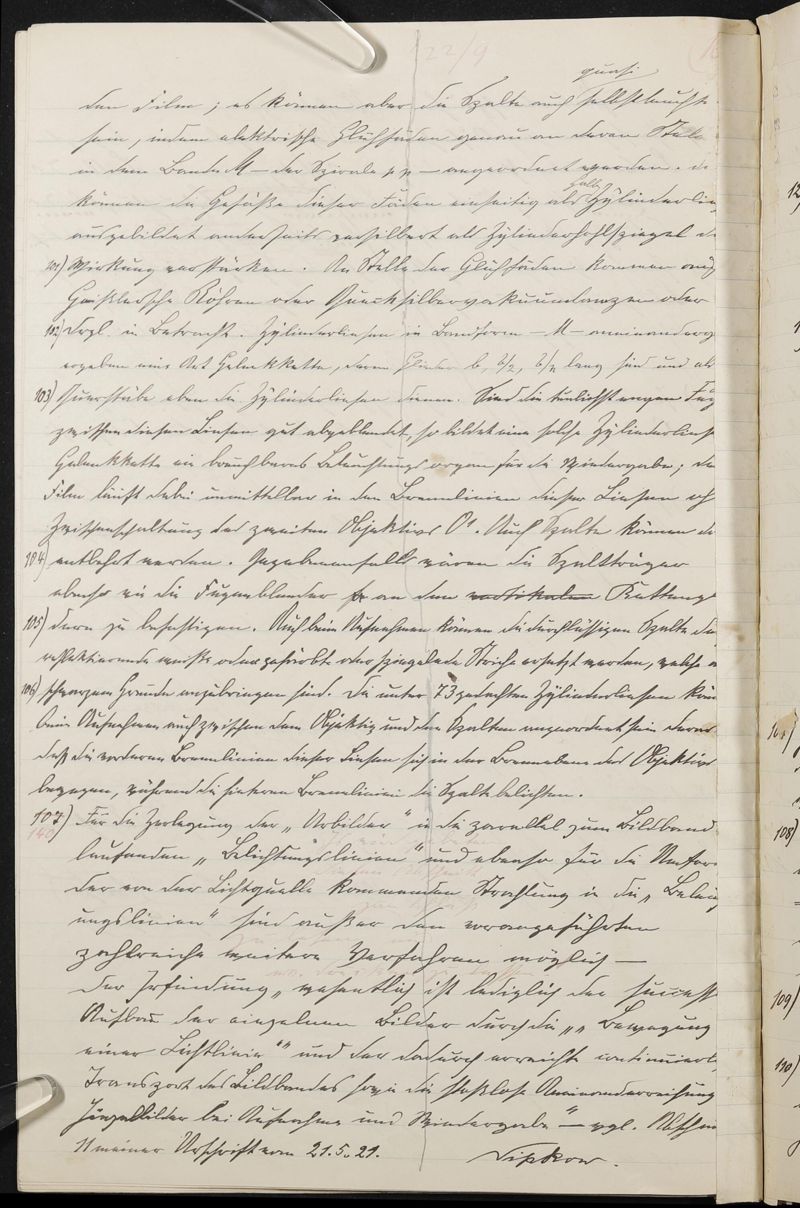 22/9
quasi
den Film; es können aber die Spalte auch selbstleuchte
sein, indem elektrische Glühfäden genau an deren Stelle
in dem Bande M – der Spirale pp – angeordnet werden.
halb
können die Gefäße dieser Fäden einseitig als Zylinderlin
ausgebildet anderseits versilbert als Zylinderhohlspiegel
101) Wirkung verstärken. An Stelle der Glühfäden kommen auch
Geißlersche Röhren oder Quecksilbervakuumlampen oder
102) drgl. in Betracht. Zylinderlinsen in Bandform – M – aneinanderg
ergeben eine Art Gelenkkette, deren Glieder b, b/2, b/n lang sind und als
103) Querstäbe eben die Zylinderlinsen dienen. Sind die tunlichst engen Fug
zwischen diesen Linsen gut abgeblendet, so bildet eine solche Zylinderlins
Gelenkkette ein brauchbares Beleuchtungsorgan für die Wiedergabe; der
Film läuft dabei unmittelbar in den Brennlinien dieser Linsen oh
Zwischenschaltung des zweiten Objektivs O¹. Auch Spalte können da
104) entbehrt werden. Gegebenenfalls wären die Spaltträger
ebenso wie die Fugenblenden an den vertikalen Kettengl
105) dern zu befestigen. Auch beim Aufnehmen können die durchlässigen Spalte du
reflektierende weiße oder gefärbte oder spiegelnde Striche ersetzt werden, welche a
106) schwarzem Grunde anzubringen sind. Die unter 73 gedachten Zylinderlinsen kön
beim Aufnehmen auch zwischen dem Objektiv und den Spalten angeordnet sein derar
daß die vorderen Brennlinien dieser Linsen sich in der Brennebene des Objektivs
bewegen, während die hinteren Brennlinien die Spalte belichten.
107) Für die Zerlegung der „Urbilder" in die parallel zum Bildband
140)
laufenden „Belichtungslinien" und ebenso für die Umfor
der von der Lichtquelle kommenden Strahlung in die „Beleuch
ungslinien" sind außer den vorangeführten
zahlreiche weitere Verfahren möglich —
Der Erfindung „wesentlich ist lediglich der success
Aufbau der einzelnen Bilder durch die „„Bewegung
einer Lichtlinie"" und der dadurch erreichte continuierl
Transport des Bildbandes sowie die stoßlose Aneinanderreihung
Einzelbilder bei Aufnahme und Wiedergabe" — vgl. Abschn
11 meiner Urschrift vom 21.5.21. Nipkow.
108)
109)
110)